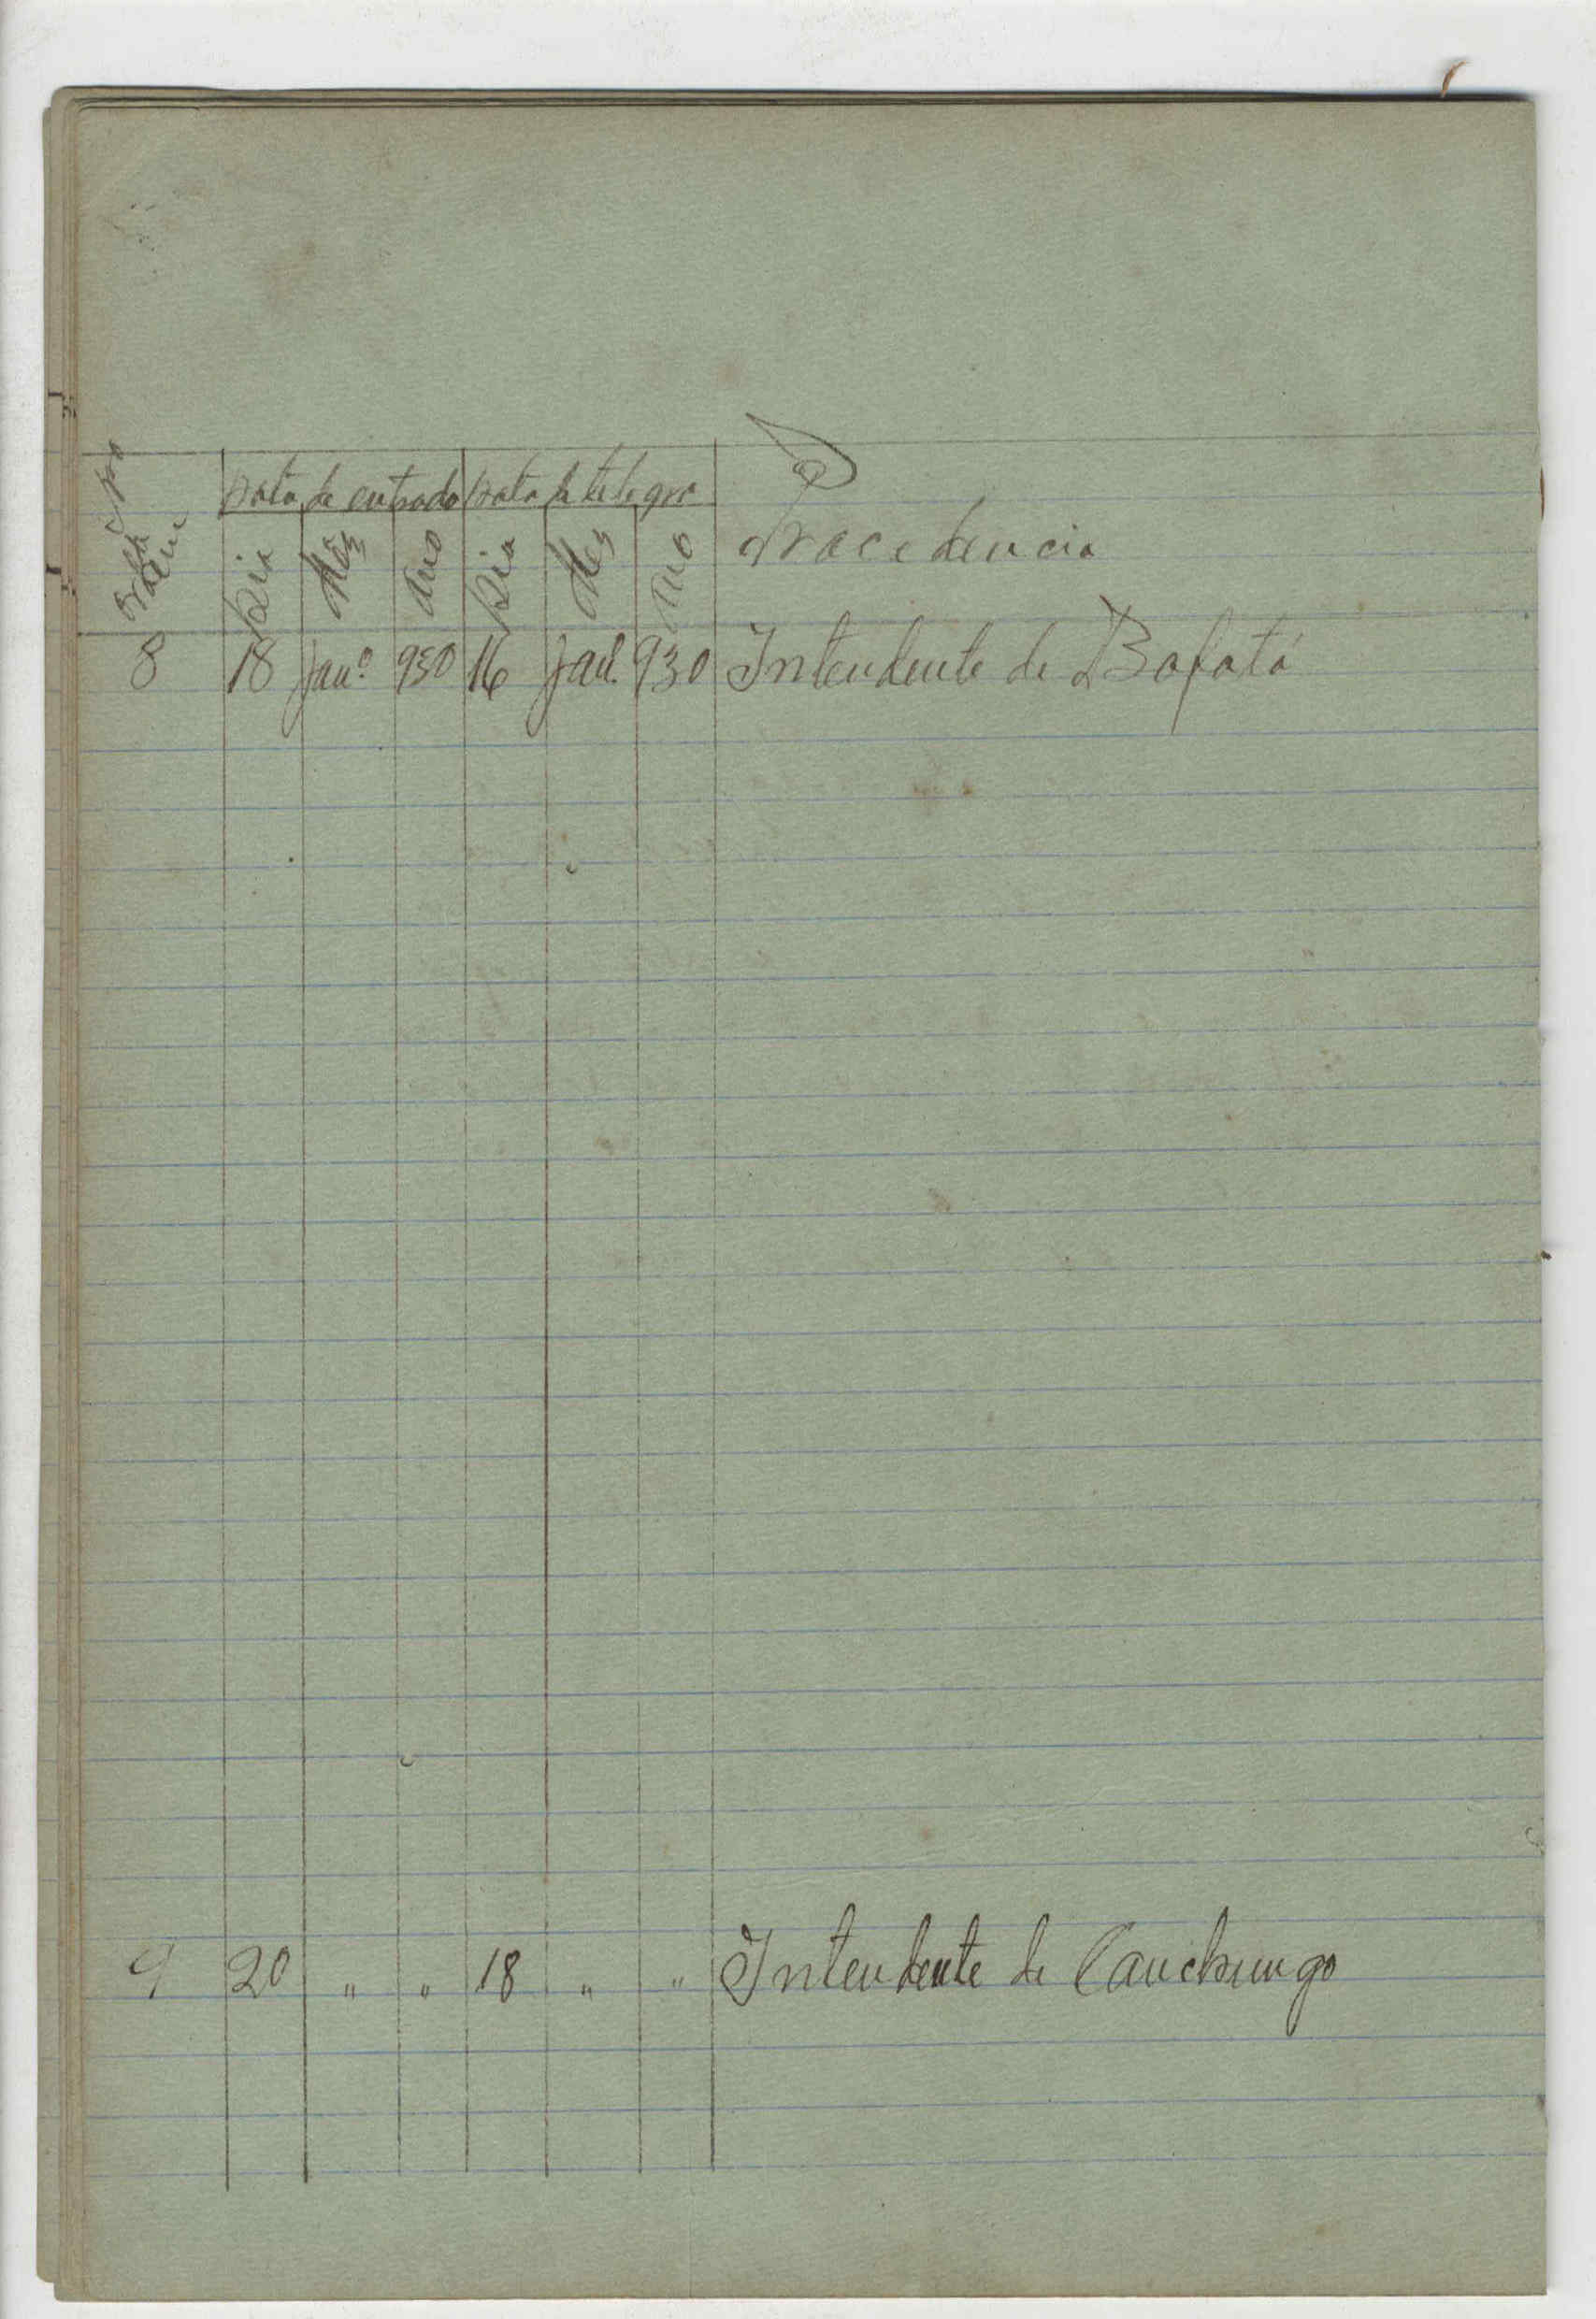 Nº de ordem
Data de entrada Data de telegra
Dia Mês Ano Dia Mês Ano Procedencia
8 18 Janº 930 16 Janº 930 Intendente de Bafatá
9 20 " " 18 " " Intendente de Canchungo